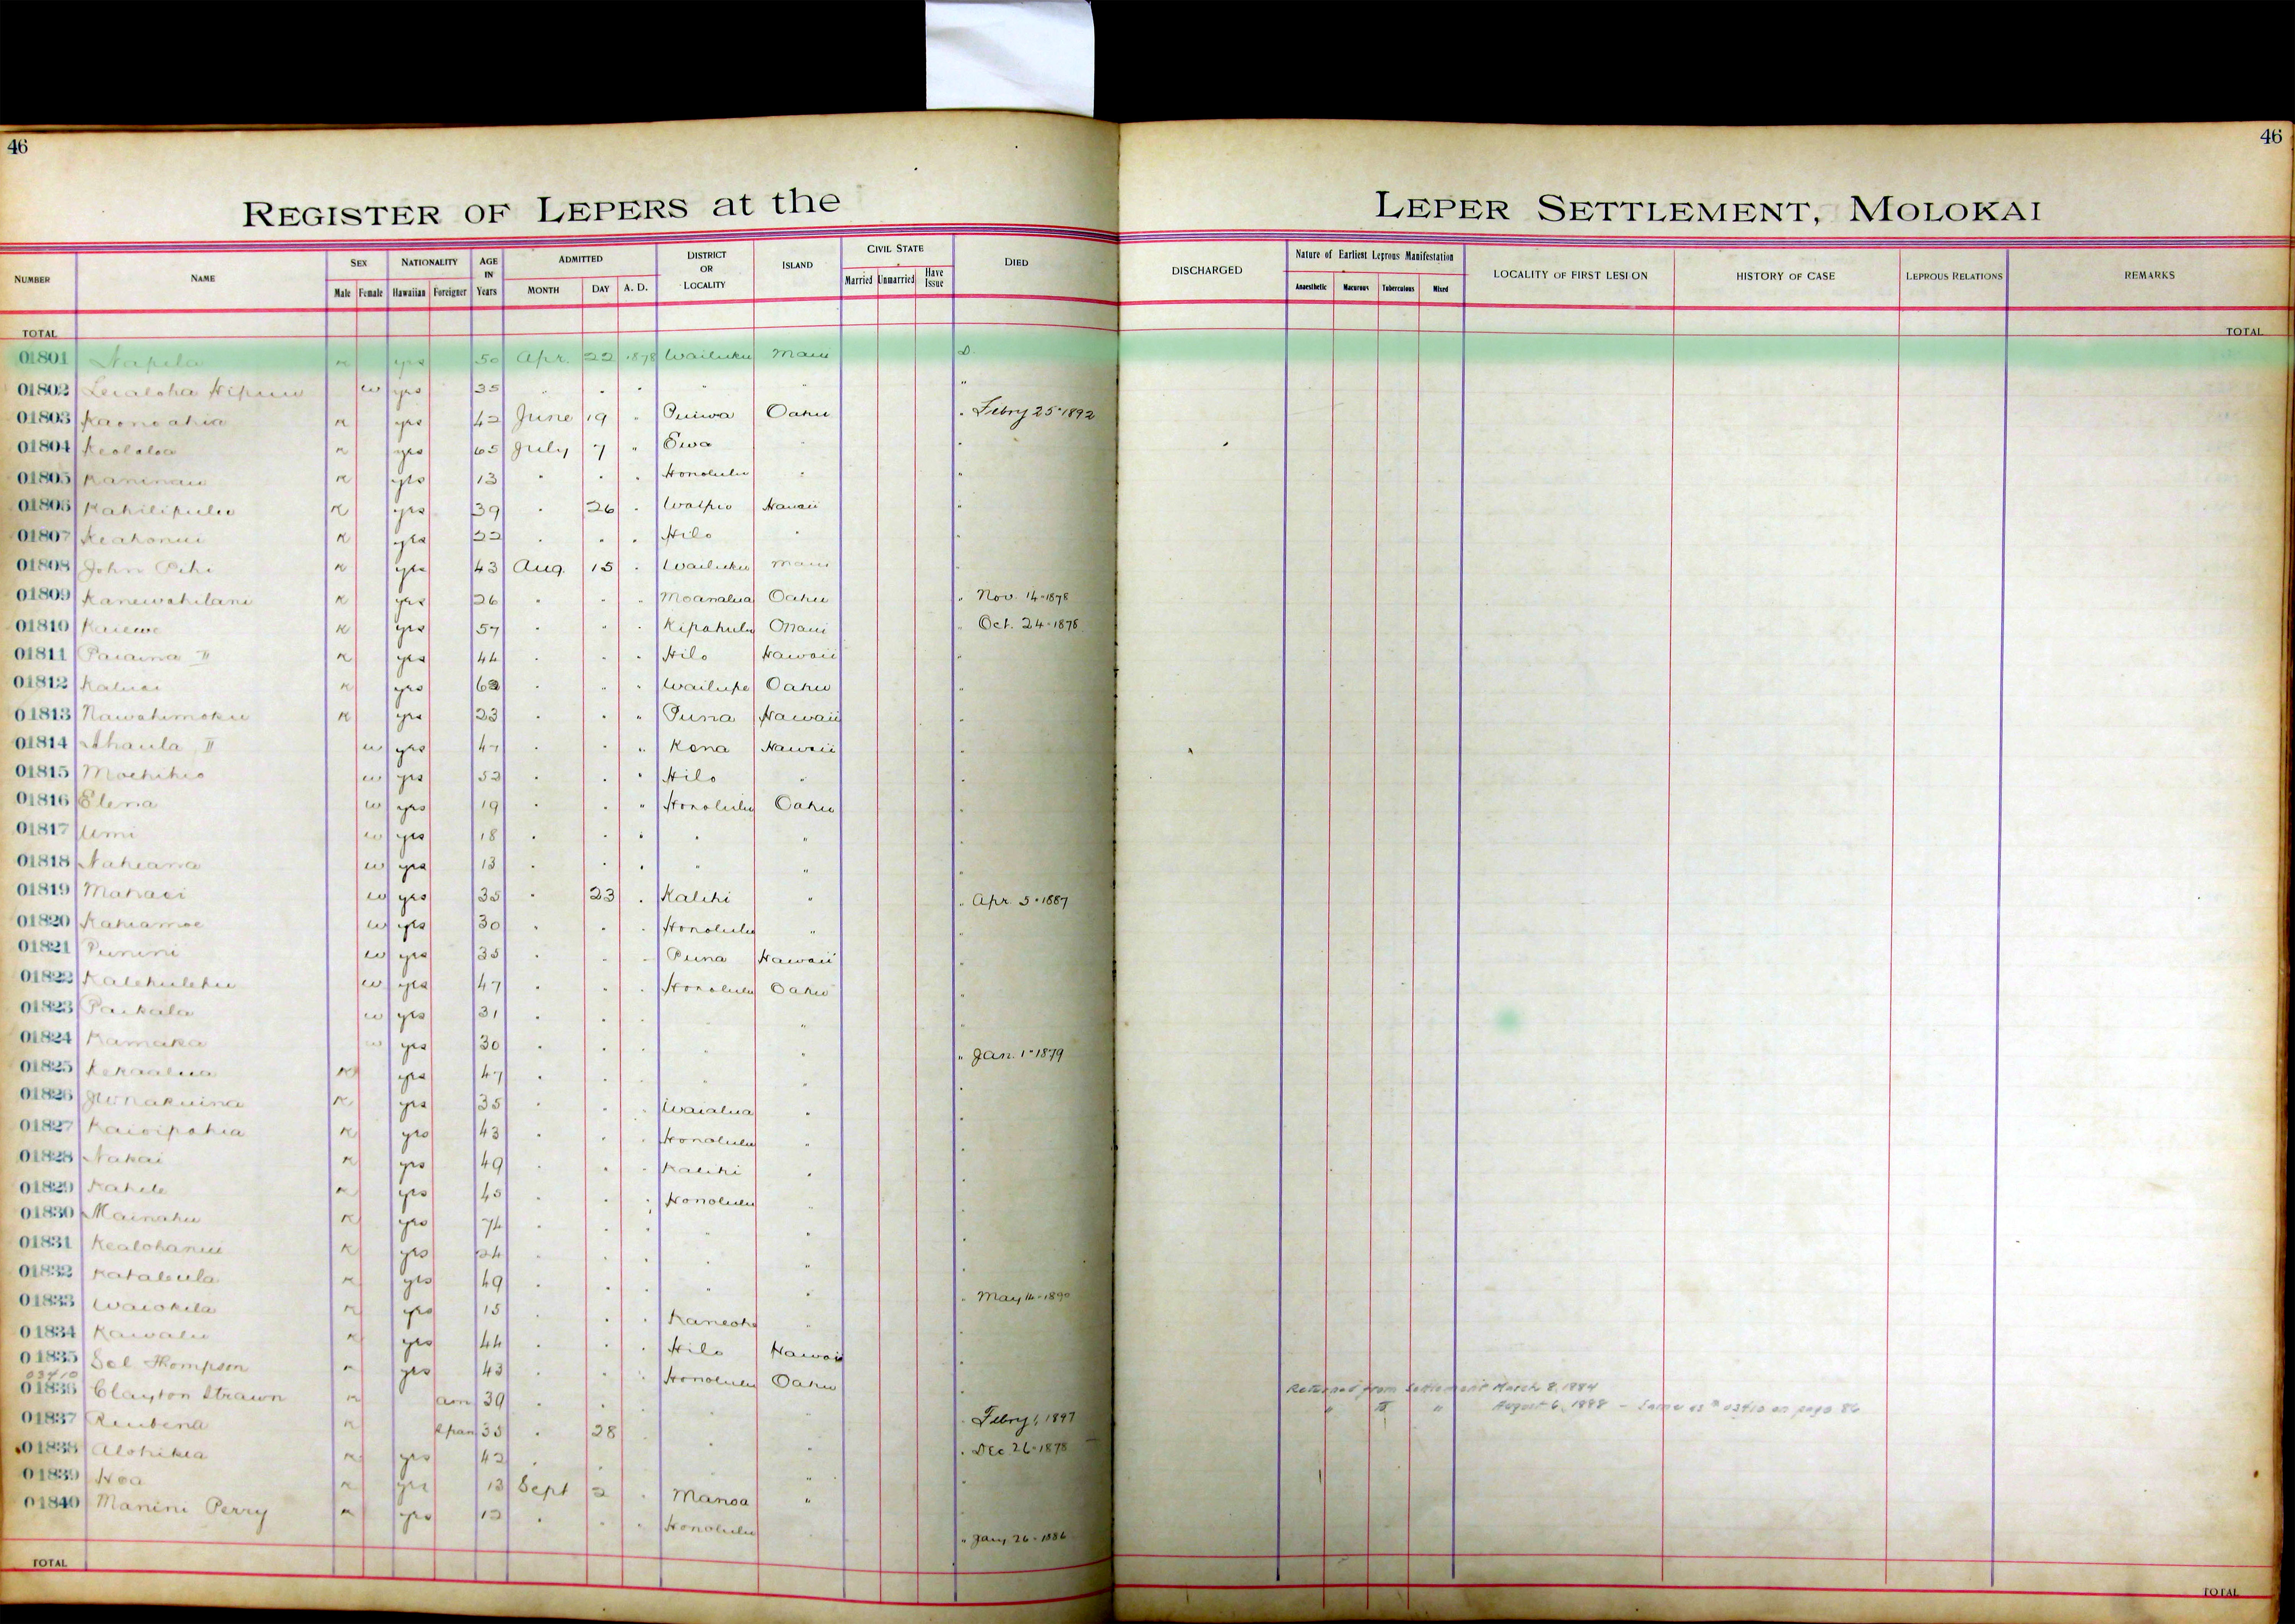 46
46
REGISTER OF LEPERS at the LEPER SETTLEMENT, MOLOKAI
NUMBER NAME SEX Male Female NATIONALITY Hawaiian Foreigner AGE IN Years ADMITTED MONTH DAY A. D. DISTRICT OR LOCALITY ISLAND CIVIL STATE Married Unmarried Have Issue DIED DISCHARGED Nature of Earliest Leprous Manifestation Anaesthetic Tuberculous Mixed LOCALITY OF FIRST LESION HISTORY OF CASE LEPROUS RELATIONS REMARKS
TOTAL TOTAL
01801 Napela K yes 50 Apr. 22 1878 Wailuku Maui D.
01802 Lealoha w yes 35 " " " " " "
01803 Kaonoahia K yes 42 June 19 " Puiwa Oahu " Febry 25 1892
01804 Keololoa K yes 65 July 7 " Ewa " "
01805 Kaninau K yes 13 " " " Honolulu " "
01806 Kahilipulu K yes 39 " 26 " Waipio Hawaii "
01807 Keahonui K yes 22 " " " Hilo " "
01808 John K yes 43 Aug. 15 " Wailuku Maui "
01809 Kanewahilani K yes 26 " " " Moanalua Oahu " Nov. 14-1878
01810 Kaiewe K yes 57 " " " Kipahulu Maui " Oct. 24-1878
01811 Paiaina II K yes 44 " " " Hilo Hawaii "
01812 Kaluai K yes " " " Wailupe Oahu "
01813 Nawahimoku K yes 23 " " " Puna Hawaii "
01814 Ahaula II w yes 47 " " " Kona Hawaii "
01815 w yes 52 " " " Hilo " "
01816 Elena w yes 19 " " " Honolulu Oahu "
01817 Umi w yes 18 " " " " " "
01818 Naheana w yes 13 " " " " " "
01819 Mahaei w yes 35 " 23 " Kalihi " " Apr. 5-1887
01820 Kahiamoe w yes 30 " " " Honolulu " "
01821 Punini w yes 35 " " " Puna Hawaii "
01822 Kalehulehu w yes 47 " " " Honolulu Oahu "
01823 Paikala w yes 31 " " " " "
01824 Kamaka w yes 30 " " " " " Jan. 1-1879
01825 Kekaalua K yes 47 " " " " "
01826 K yes 35 " " " Waialua " "
01827 Kaioipahia K yes 43 " " " Honolulu " "
01828 Nakai K yes 49 " " " Kalihi " "
01829 Kahele K yes 45 " " " Honolulu " "
01830 Mainahu K yes 74 " " " " "
01831 Kealohanui K yes 24 " " " " "
01832 K yes 49 " " " " " May 14-1890
01833 Waiokila K yes 15 " " " Kaneohe " "
01834 Kawalu K yes 44 " " " Hilo Hawaii "
01835 Sol Thompson K yes 43 " " " Honolulu Oahu "
03410
01836 Clayton Strawn K am 39 " " " " Febry 1, 1897 Returned from Settlement March 8, 1884
" " " August 6, 1888 - Same as # 03410 on page 86
01837 Reubena K Span 35 " 28 " " " Dec 26-1878
01838 Alohikea K yes 42 " " " " "
01839 Hoa K yes 13 Sept 2 " Manoa "
01840 Manini Perry K yes 12 " " " Honolulu " Jany 26-1886
TOTAL TOTAL